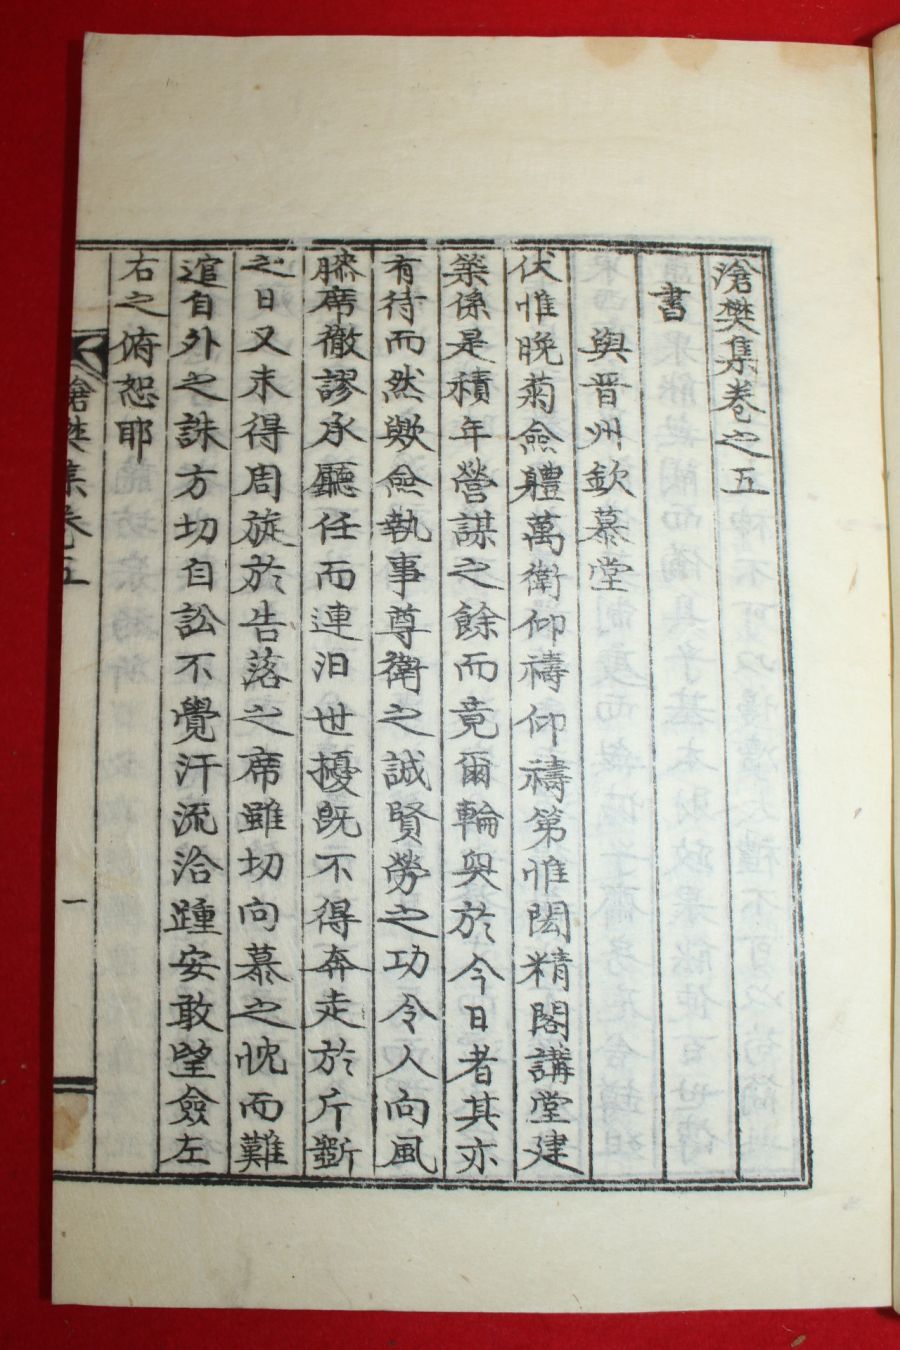 滄樊集卷之五
書
與晋州欽慕堂
伏惟晩菊僉軆萬衛仰禱仰禱第惟閎精閣講堂建
築係是積年營謀之餘而竟爾輪奐於今日者其亦
有待而然歟僉執事尊衛之誠賢勞之功令人向風
膝席徹謬承廳任而連汨世擾旣不得奔走於斤斲
之日又未得周旋於告落之席雖切向慕之忱而難
逭自外之誅方切自訟不覺汗流洽踵安敢望僉左
右之俯恕耶
滄樊集卷五
一